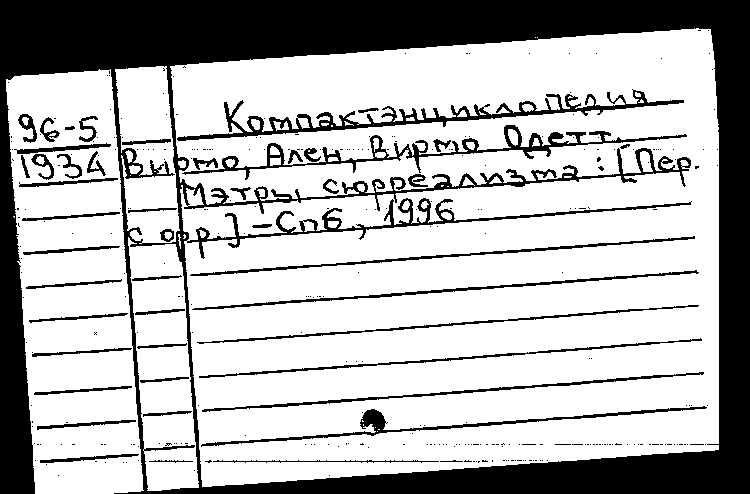 Компактэнциклопедия
96-5
1934 Вирмо, Ален, Вирмо Одетт.
Мэтры сюрреализма : [Пер.
с фр.] - Спб, 1996